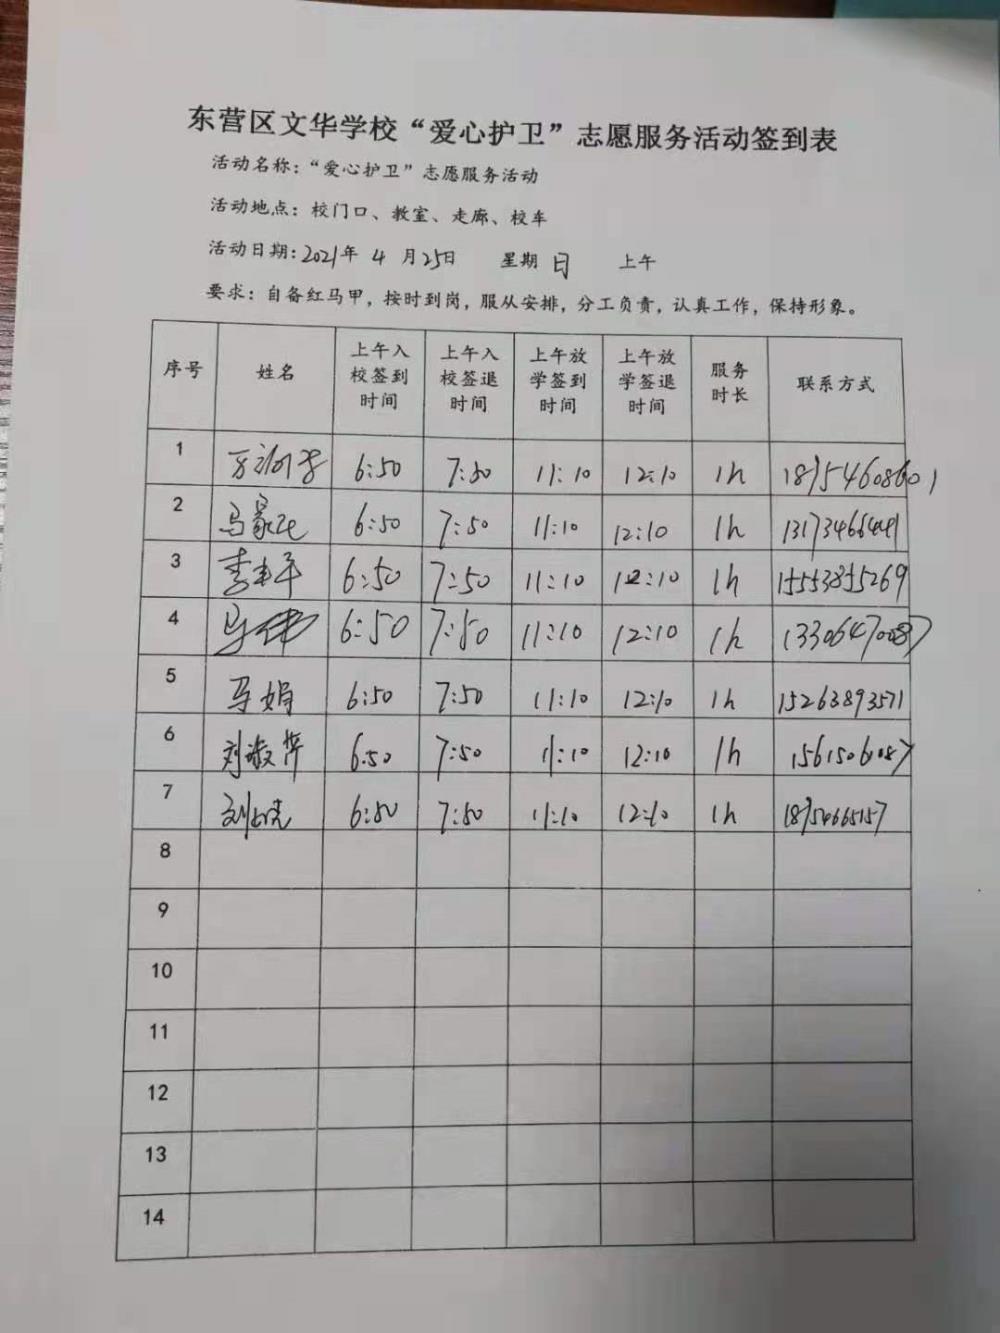 东营区文华学校“爱心护卫”志愿服务活动签到表
活动名称：“爱心护卫”志愿服务活动
活动地点：校门口、教室、走廊、校车
活动日期：2021年 4 月25日 星期 日 上午
要求：自备红马甲，按时到岗，服从安排，分工负责，认真工作，保持形象。
序号 姓名 上午入校签到时间 上午入校签退时间 上午放学签到时间 上午放学签退时间 服务时长 联系方式
1 6:50 7:50 11:10 12:10 1h 18954608601
2 6:50 7:50 11:10 12:10 1h
3 6:50 7:50 11:10 12:10 1h 15553855269
4 马伟 6:50 7:50 11:10 12:10 1h 13306470087
5 马娟 6:50 7:50 11:10 12:10 1h 15263893571
6 刘淑萍 6:50 7:50 11:10 12:10 1h 15615061087
7 6:50 7:50 11:10 12:10 1h 18954665157
8
9
10
11
12
13
14